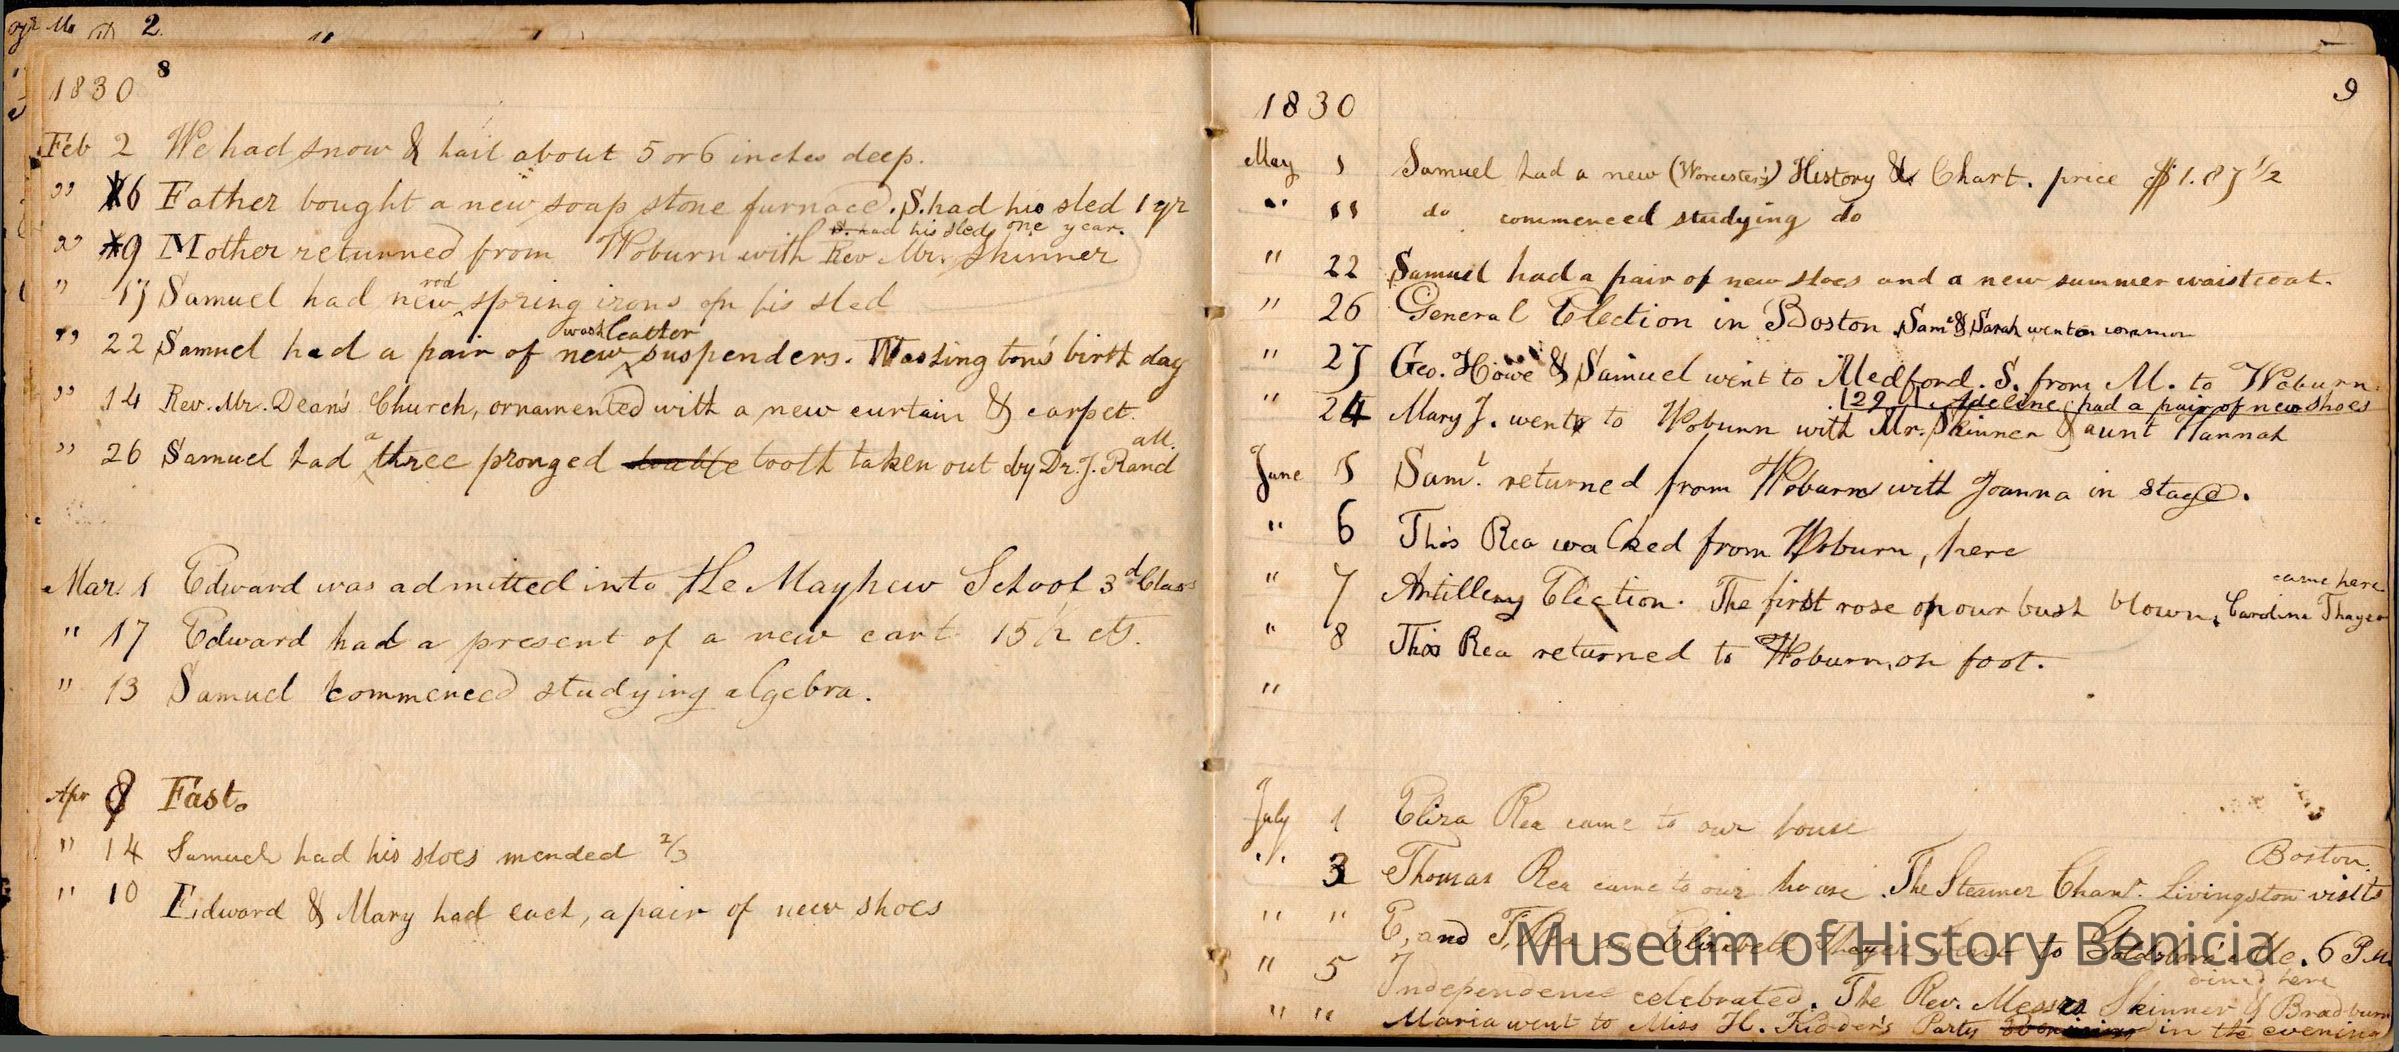 8
1830
Feb 2 We had snow & hail about 5 or 6 inches deep.
" 6 Father bought a new soap stone furnace. S. had his sled 1 yr
S. had his sled one year.
" 9 Mother returned from Woburn with Rev Mr. Skinner
rod
" 17 Samuel had new spring irons on his sled
wash leather
" 22 Samuel had a pair of new suspenders. Wasington's birth day
" 14 Rev. Mr. Dean's Church, ornamented with a new curtain & carpet
a att.
" 26 Samuel had three pronged double tooth taken out by Dr. J. Rand
Mar. 1 Edward was admitted into the Mayhew School 3d Class
" 17 Edward had a present of a new cart 15 1/2 cts.
" 13 Samuel commenced studying algebra.
Apr 8 Fast.
" 14 Samuel had his shoes mended 2/3
" 10 Edward & Mary had each, a pair of new shoes
9
1830
May 1 Samuel had a new (Worcester's) History & Chart. price $1.87 1/2
" " do commenced studying do
" 22 Samuel had a pair of new shoes and a new summer waistcoat.
" 26 General Election in Boston. Saml & Sarah went on common
" 27 Geo. Howe & Samuel went to Medford. S. from M. to Woburn.
29 Adeline had a pair of new shoes
" 24 Mary J. went to Woburn with Mr. Skinner & aunt Hannah
June 5 Saml. returned from Woburn with Joanna in stage.
" 6 Thos Rea walked from Woburn, here
came here
" 7 Artillery Election. The first rose on our bush blown. Caroline Thayer
" 8 Thos Rea returned to Woburn, on foot.
"
July 1 Eliza Rea came to our house
Boston
" 3 Thomas Rea came to our house. The Steamer Chanr. Livingston visits
" " E. and T. Rea and Elizabeth Thayer went to 6 P.M.
dined here
" 5 Independence celebrated. The Rev. Messrs Skinner & Bradburn
" " Maria went to Miss H. Kidder's Party in the evening
Museum of History Benicia